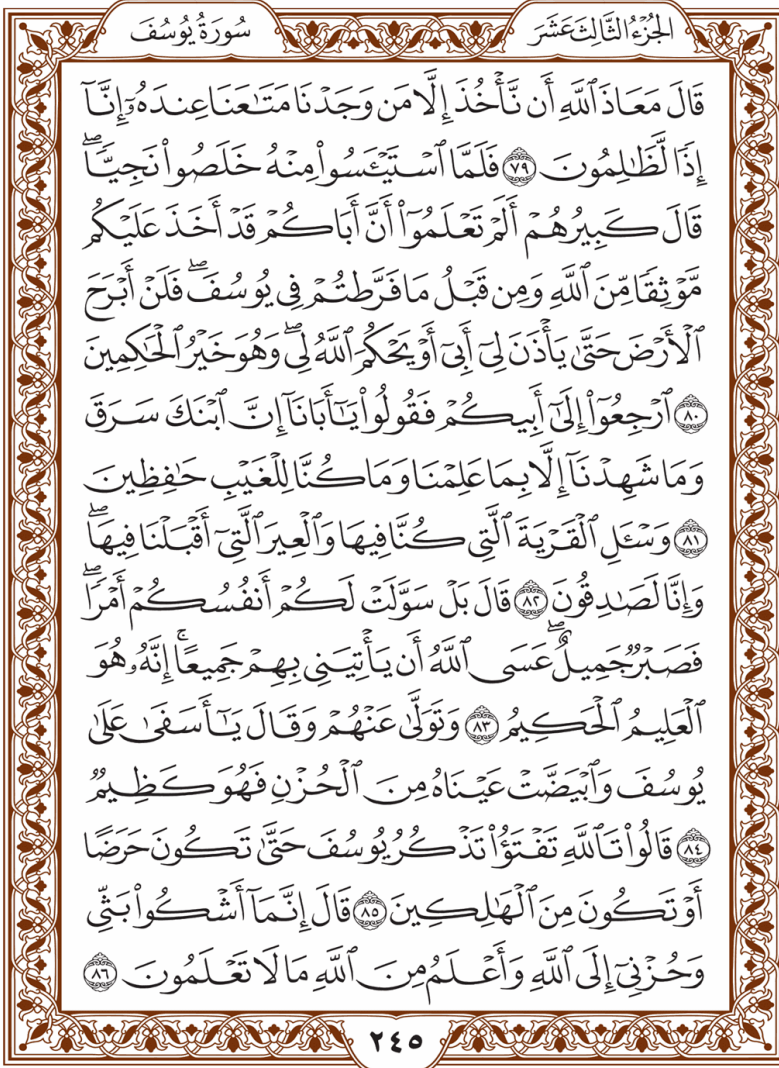 الجُزْءُ الثَّالِثَ عَشَرَ
سُورَةُ يُوسُفَ
قَالَ مَعَاذَ ٱللَّهِ أَن نَّأْخُذَ إِلَّا مَن وَجَدْنَا مَتَـٰعَنَا عِندَهُۥٓ إِنَّآ
إِذًا لَّظَـٰلِمُونَ ٧٩ فَلَمَّا ٱسْتَيْـَٔسُوا۟ مِنْهُ خَلَصُوا۟ نَجِيًّا ۖ
قَالَ كَبِيرُهُمْ أَلَمْ تَعْلَمُوٓا۟ أَنَّ أَبَاكُمْ قَدْ أَخَذَ عَلَيْكُم
مَّوْثِقًا مِّنَ ٱللَّهِ وَمِن قَبْلُ مَا فَرَّطتُمْ فِى يُوسُفَ ۖ فَلَنْ أَبْرَحَ
ٱلْأَرْضَ حَتَّىٰ يَأْذَنَ لِىٓ أَبِىٓ أَوْ يَحْكُمَ ٱللَّهُ لِى ۖ وَهُوَ خَيْرُ ٱلْحَـٰكِمِينَ
٨٠ ٱرْجِعُوٓا۟ إِلَىٰٓ أَبِيكُمْ فَقُولُوا۟ يَـٰٓأَبَانَآ إِنَّ ٱبْنَكَ سَرَقَ
وَمَا شَهِدْنَآ إِلَّا بِمَا عَلِمْنَا وَمَا كُنَّا لِلْغَيْبِ حَـٰفِظِينَ
٨١ وَسْـَٔلِ ٱلْقَرْيَةَ ٱلَّتِى كُنَّا فِيهَا وَٱلْعِيرَ ٱلَّتِىٓ أَقْبَلْنَا فِيهَا ۖ
وَإِنَّا لَصَـٰدِقُونَ ٨٢ قَالَ بَلْ سَوَّلَتْ لَكُمْ أَنفُسُكُمْ أَمْرًا ۖ
فَصَبْرٌ جَمِيلٌ ۖ عَسَى ٱللَّهُ أَن يَأْتِيَنِى بِهِمْ جَمِيعًا ۚ إِنَّهُۥ هُوَ
ٱلْعَلِيمُ ٱلْحَكِيمُ ٨٣ وَتَوَلَّىٰ عَنْهُمْ وَقَالَ يَـٰٓأَسَفَىٰ عَلَىٰ
يُوسُفَ وَٱبْيَضَّتْ عَيْنَاهُ مِنَ ٱلْحُزْنِ فَهُوَ كَظِيمٌ
٨٤ قَالُوا۟ تَٱللَّهِ تَفْتَؤُا۟ تَذْكُرُ يُوسُفَ حَتَّىٰ تَكُونَ حَرَضًا
أَوْ تَكُونَ مِنَ ٱلْهَـٰلِكِينَ ٨٥ قَالَ إِنَّمَآ أَشْكُوا۟ بَثِّى
وَحُزْنِىٓ إِلَى ٱللَّهِ وَأَعْلَمُ مِنَ ٱللَّهِ مَا لَا تَعْلَمُونَ ٨٦
٢٤٥